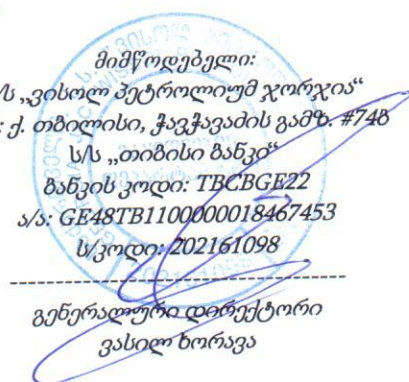 მიმწოდებელი:
ს/ს „ვისოლ პეტროლიუმ ჯორჯია“
: ქ. თბილისი, ჭავჭავაძის გამზ. #74ბ
ს/ს „თიბისი ბანკი“
ბანკის კოდი: TBCBGE22
ა/ა: GE48TB1100000018467453
ს/კოდი: 202161098
გენერალური დირექტორი
ვასილ ხორავა